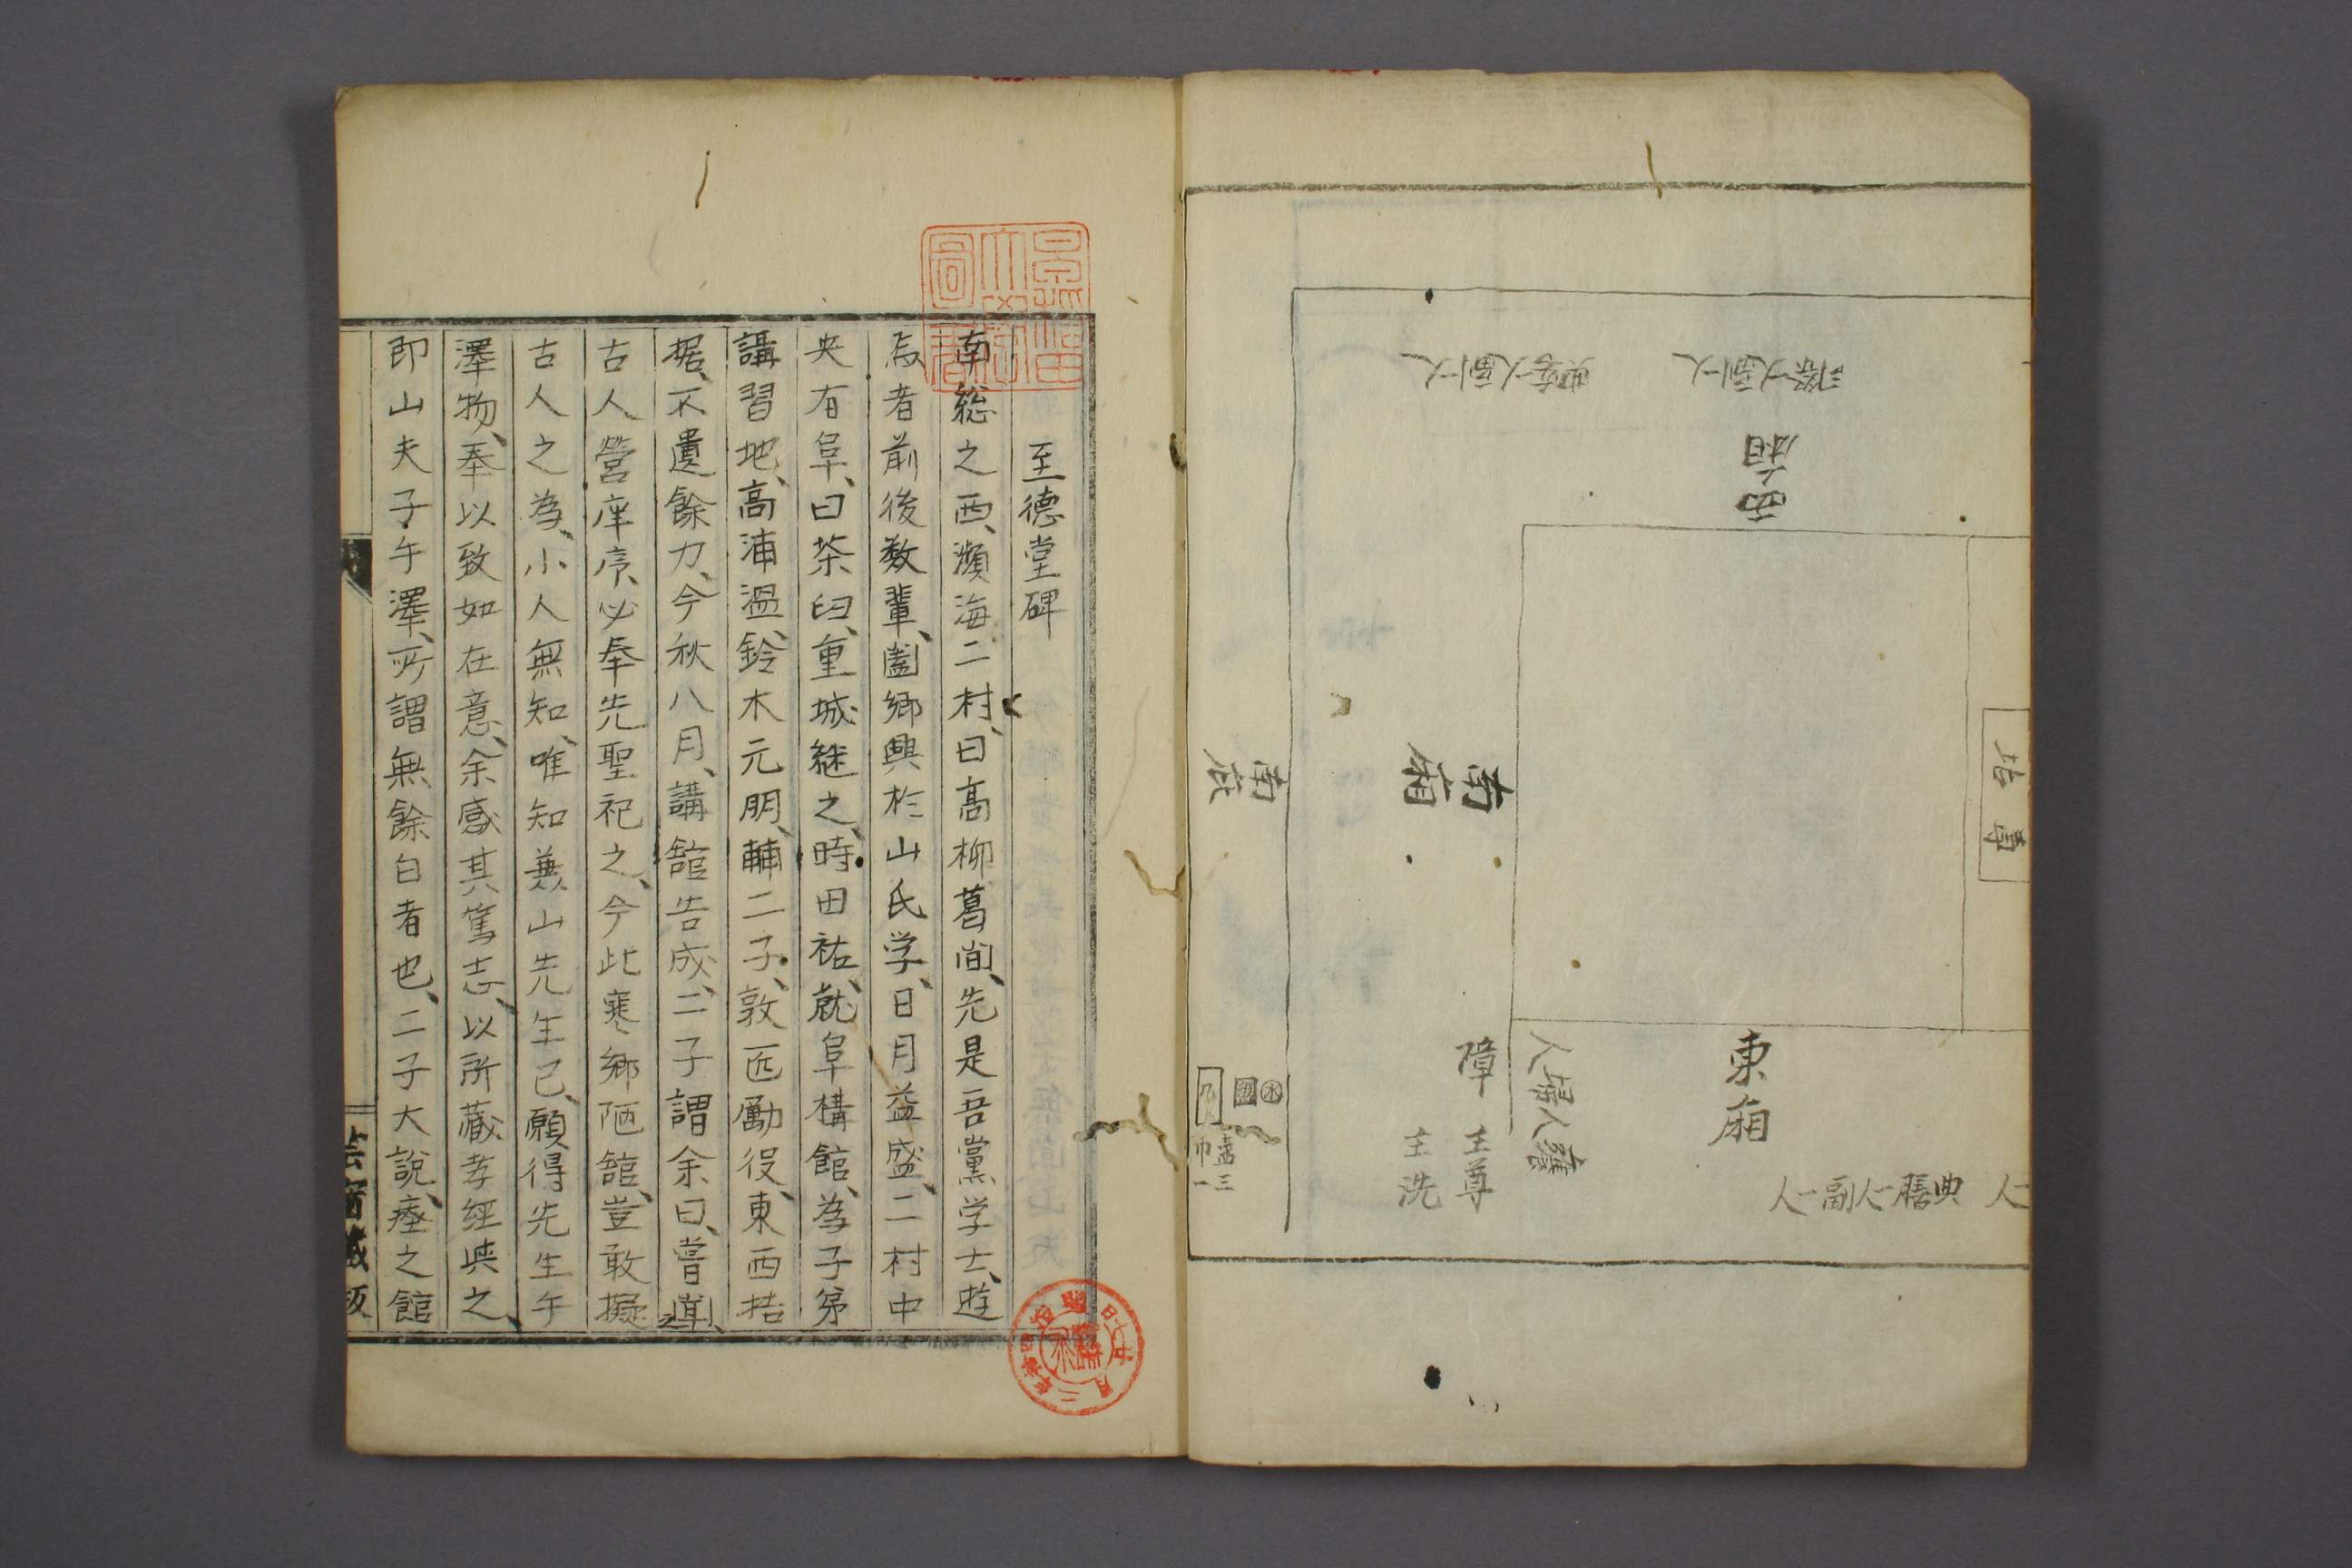 北専
西廂
南廂
南蔵
東廂
典膳一人副一人
障
主尊
主洗
水
盥三
巾一
至德堂碑
南総之西、瀕海二村、曰高柳葛間、先是吾黨学士、遊
焉者前後数輩、闔郷興於山氏学、日月益盛、二村中
央有阜、曰茶臼、重城継之、時田祐、就阜構館、為子弟
講習地、高浦溫、鈴木元朋、輔二子、敦匠勵役、東西拮
据、不遺餘力、今秋八月、講舘告成、二子謂余曰、嘗道、
古人營庠序、必奉先聖祀之、今此寒郷陋舘、豈敢擬
古人之為、小人無知、唯知兼山先生已、願得先生午
澤物、奉以致如在意、余感其篤志、以所藏孝經與之、
即山夫子午澤、所謂無餘白者也、二子大說、瘞之館
芸窗藏版